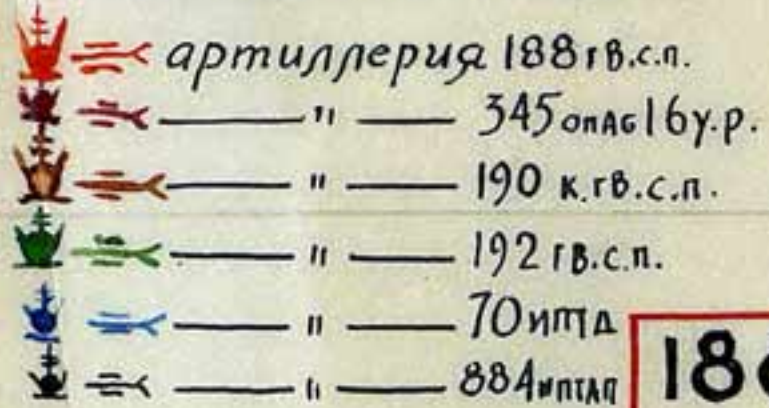 артиллерия 188 гв.с.п.
— " — 345 опАб 16 у.р.
— " — 190 к.гв.с.п.
— " — 192 гв.с.п.
— " — 70 иптд
— " — 884 иптап